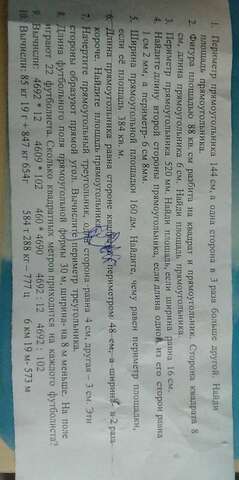 1. Периметр прямоугольника 144 см, а одна сторона в 3 раза больше другой. Найди
площадь прямоугольника.
2. Фигура площадью 88 кв. см разбита на квадрат и прямоугольник. Сторона квадрата 8
см, длина прямоугольника 6 см. Найди площадь прямоугольника.
3. Периметр прямоугольника 120 мм. Найди площадь, если ширина равна 16 см.
4. Найдите длину второй стороны прямоугольника, если длина одной из его сторон равна
1 см 2 мм, а периметр- 6 см 8мм.
5. Ширина прямоугольной площадки 160 дм. Найдите, чему равен периметр площадки,
если её площадь 384 кв. м.
6. Длина прямоугольника равна стороне квадрата периметром 48 см, а ширина в 2 раза
короче. Найдите площадь прямоугольника.
7. Начертите прямоугольный треугольник, одна сторона равна 4 см, другая – 3 см. Эти
стороны образуют прямой угол. Вычислите периметр треугольника.
8. Длина футбольного поля прямоугольной формы 30 м, ширина- на 8 м меньше. На поле
играют 22 футболиста. Сколько квадратных метров приходится на каждого футболиста?
9. Вычисли: 4692 * 12 4609 * 102 460 * 4690 4692 : 12 4692 : 102
10. Вычисли: 85 кг 19 г + 847 кг 654г 584 т 288 кг – 777 ц 6 км 19 м- 573 м